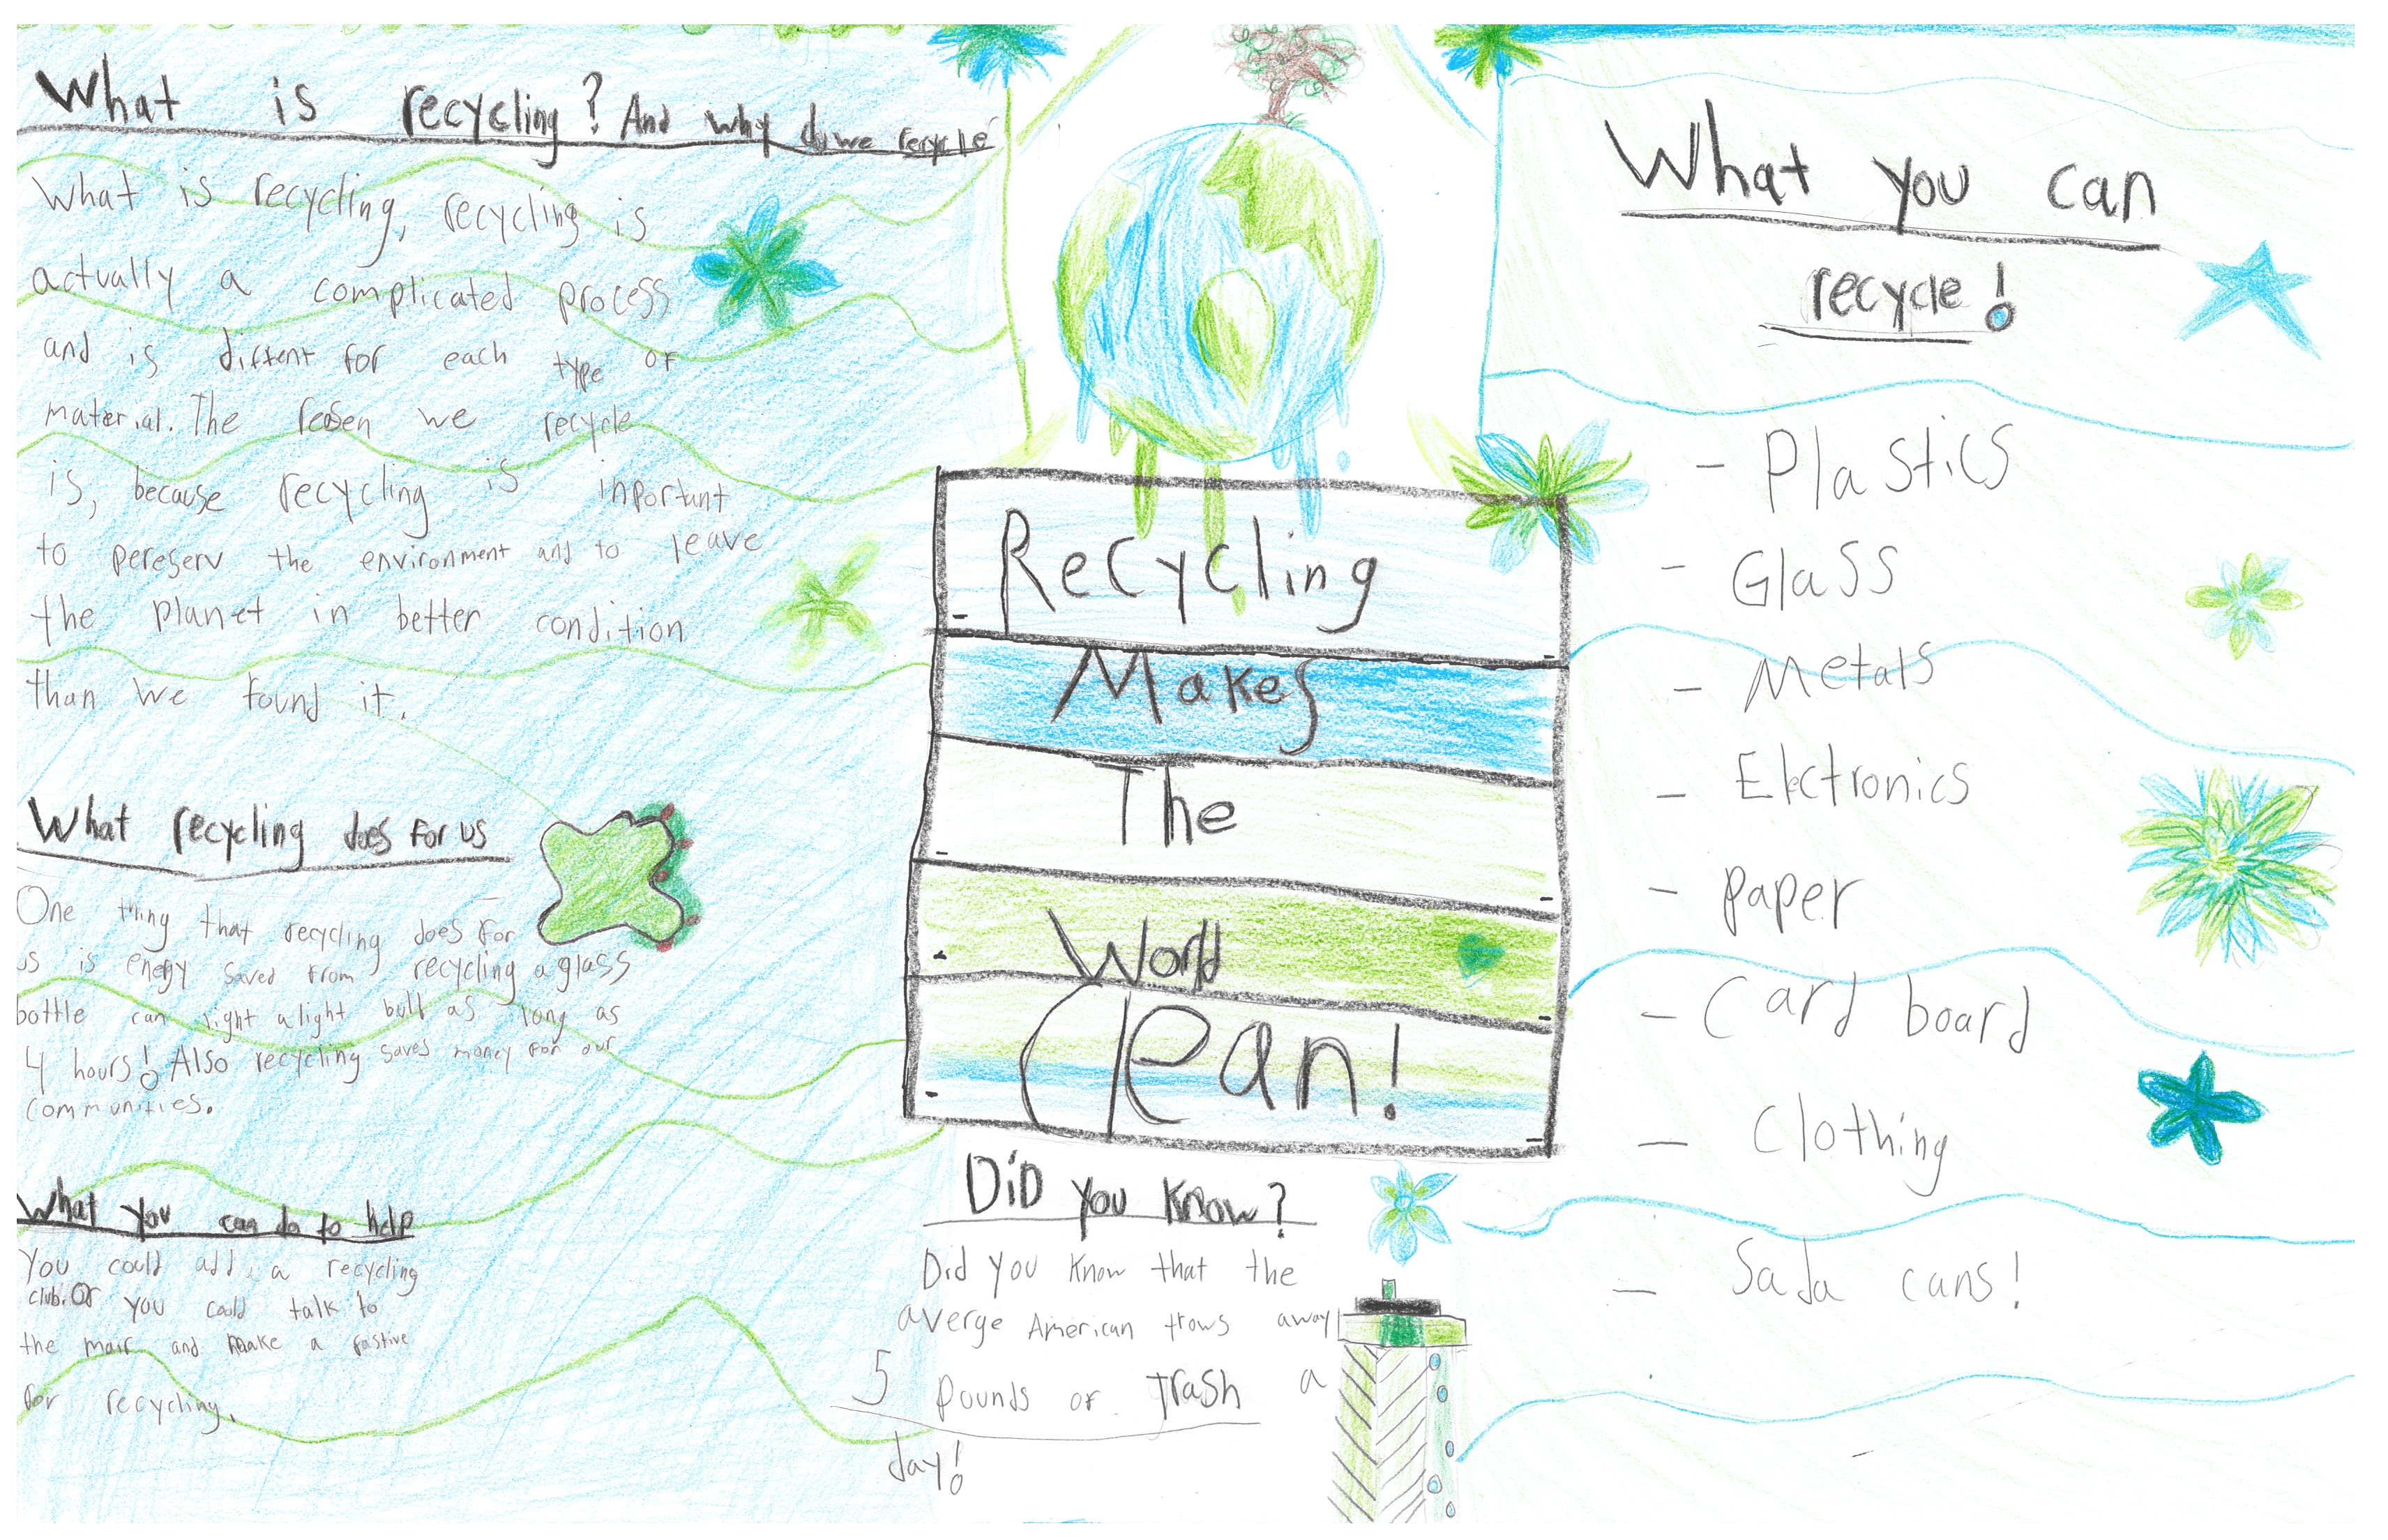 What is recycling? And why do we recycle
What is recycling, recycling is
actually a complicated process
and is diffent for each type of
material. The reasen we recycle
is, because recycling is inportant
to pereserv the environment and to leave
the planet in better condition
than we found it.
What recycling does for us
One thing that recycling does for
us is energy saved from recycling a glass
bottle can light a light bulb as long as
4 hours! Also recycling saves money for our
communities.
What you can do to help
You could add a recycling
club. Or you could talk to
the mair and make a fastive
for recycling.
Recycling
Makes
The
World
Clean!
Did you know?
Did you know that the
averge American trows away
5 pounds of trash a
day!
What you can
recycle!
- Plastics
- Glass
- Metals
- Elctronics
- paper
- Card board
- Clothing
- Soda cans!